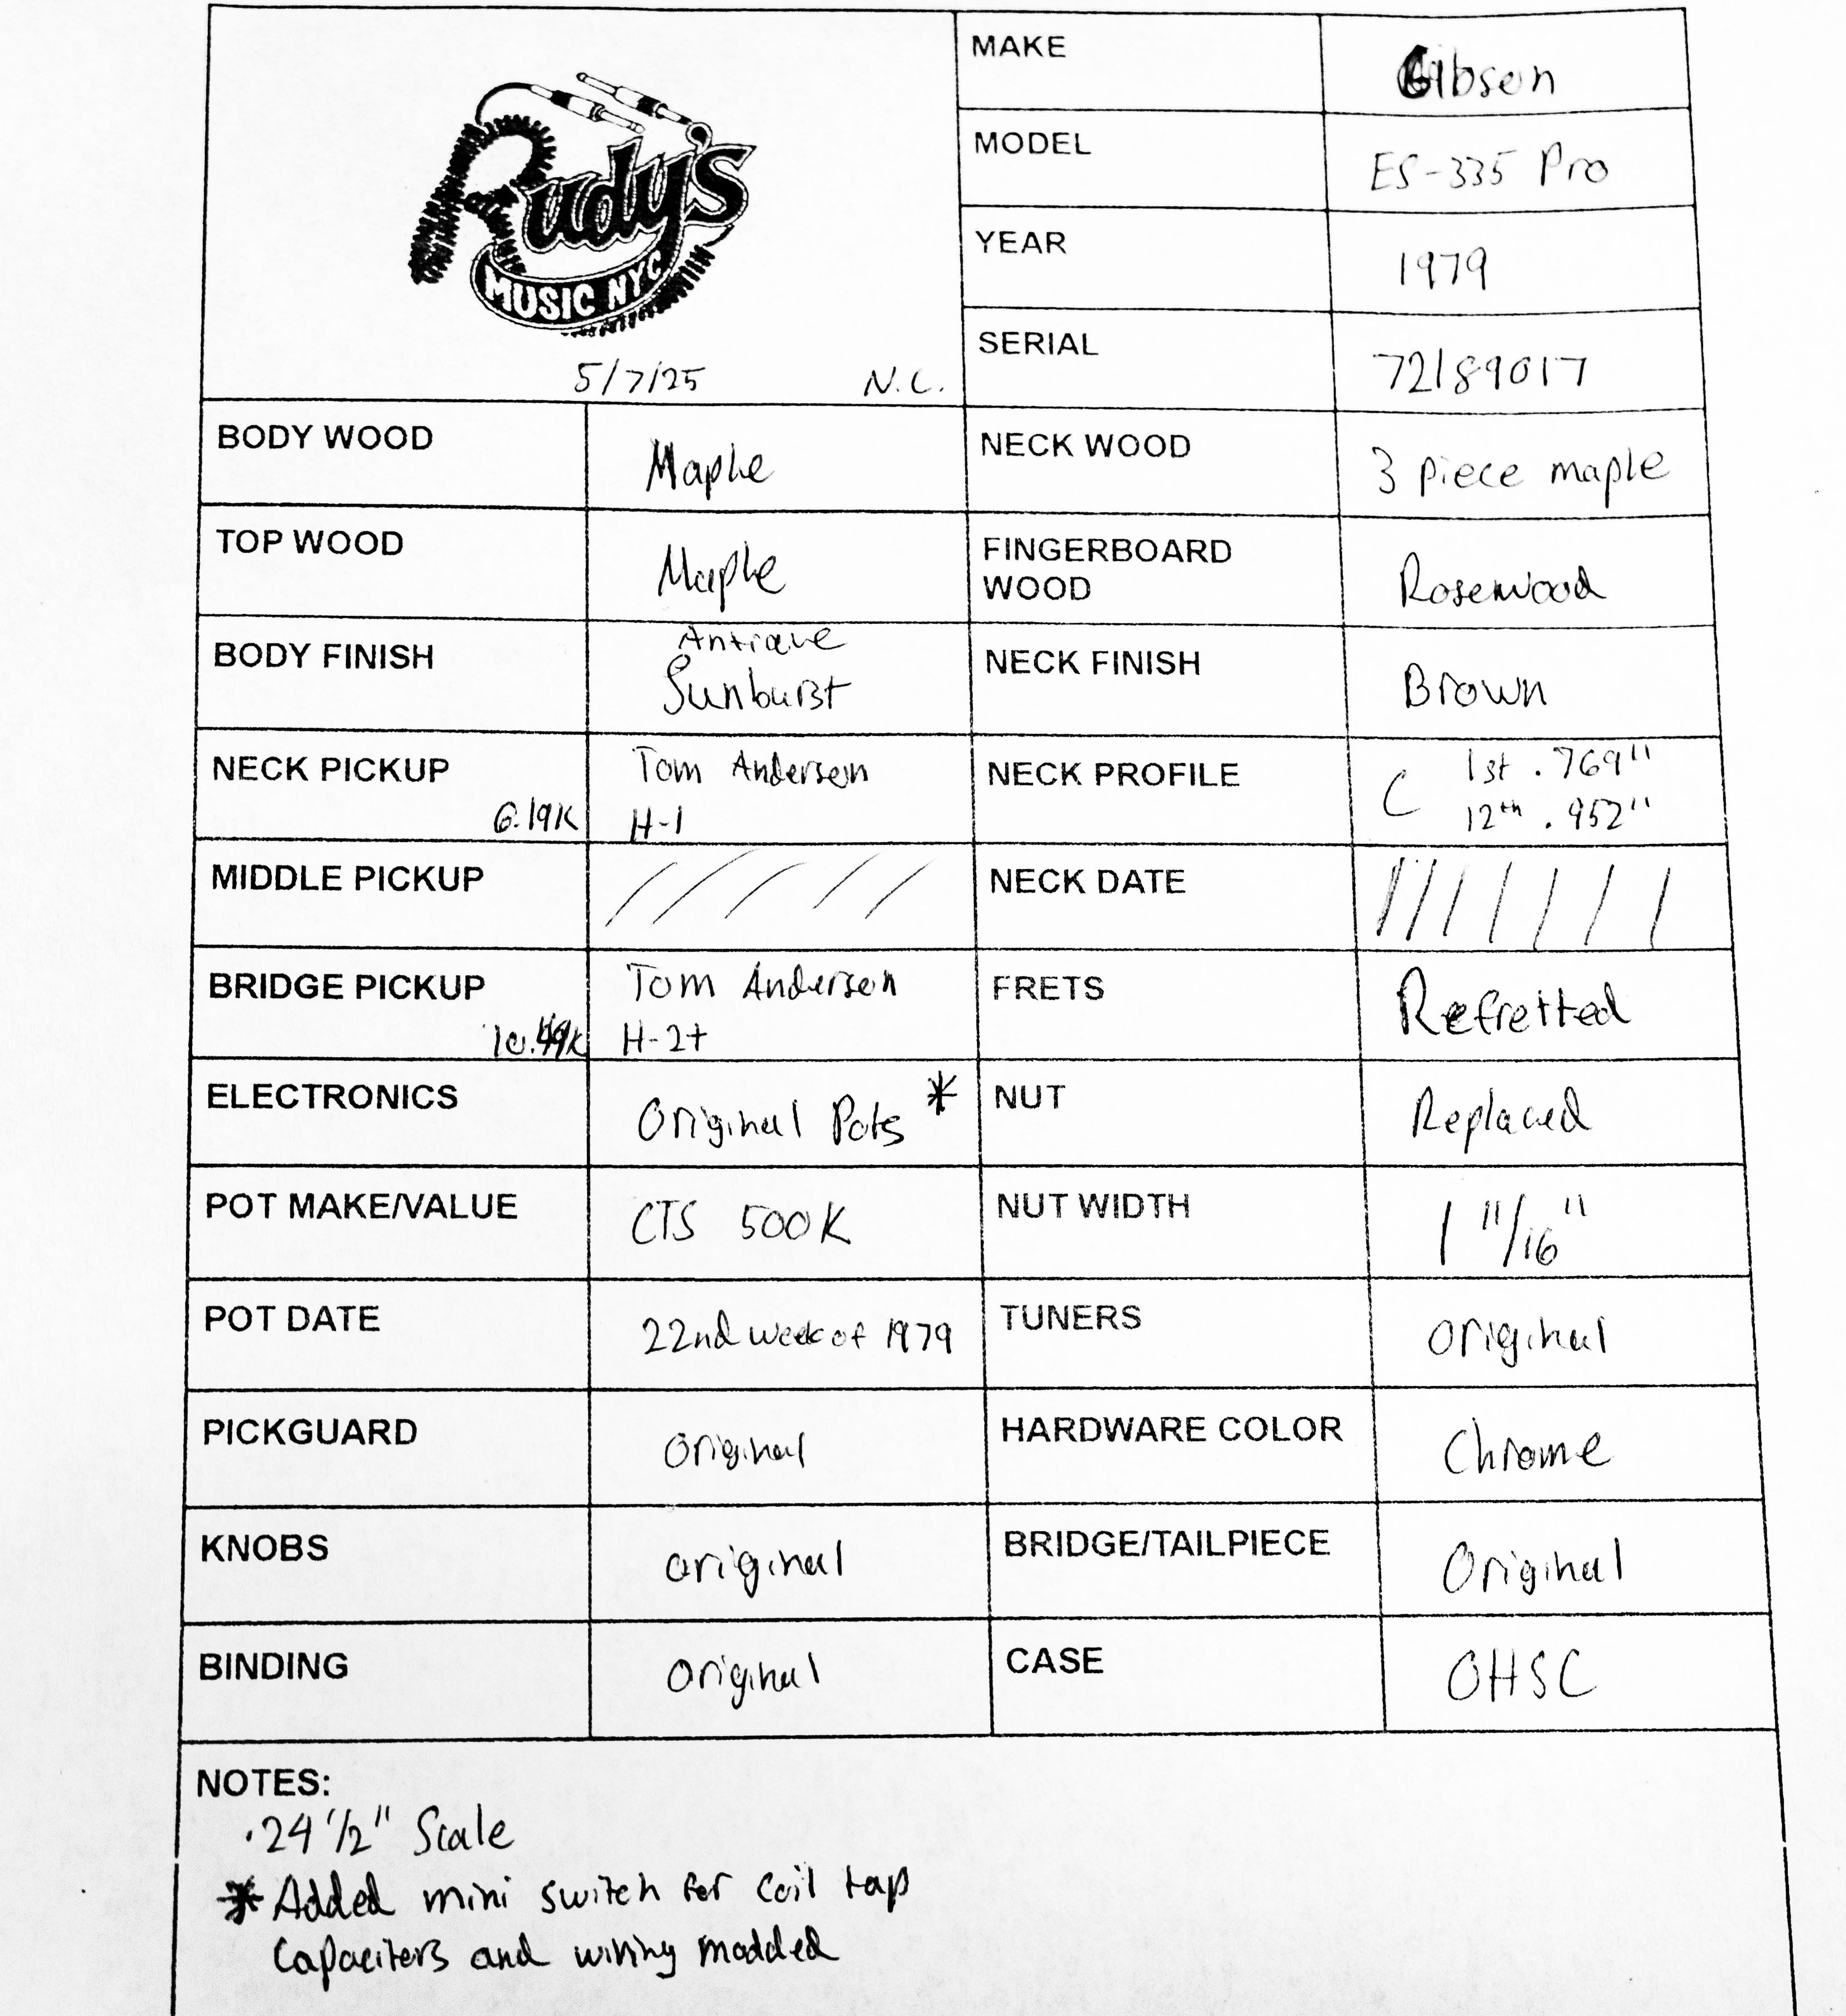 Rudy's
MUSIC NYC
5/7/25 N.C.
MAKE Gibson
MODEL ES-335 Pro
YEAR 1979
SERIAL 72189017
BODY WOOD Maple
NECK WOOD 3 piece maple
TOP WOOD Maple
FINGERBOARD
WOOD Rosewood
BODY FINISH Antique
Sunburst
NECK FINISH Brown
NECK PICKUP Tom Anderson
6.19K H-1
NECK PROFILE C 1st .769"
12th .952"
MIDDLE PICKUP
NECK DATE
BRIDGE PICKUP Tom Anderson
10.49K H-2+
FRETS Refretted
ELECTRONICS Original Pots *
NUT Replaced
POT MAKE/VALUE CTS 500K
NUT WIDTH 1 11/16"
POT DATE 22nd week of 1979
TUNERS Original
PICKGUARD Original
HARDWARE COLOR Chrome
KNOBS original
BRIDGE/TAILPIECE Original
BINDING Original
CASE OHSC
NOTES:
·24 1/2" Scale
* Added mini switch for coil tap
Capaciters and wiring modded